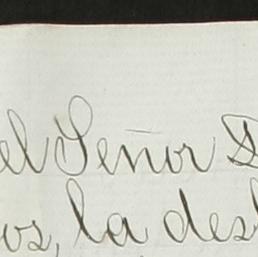 el Señor D
os, la des